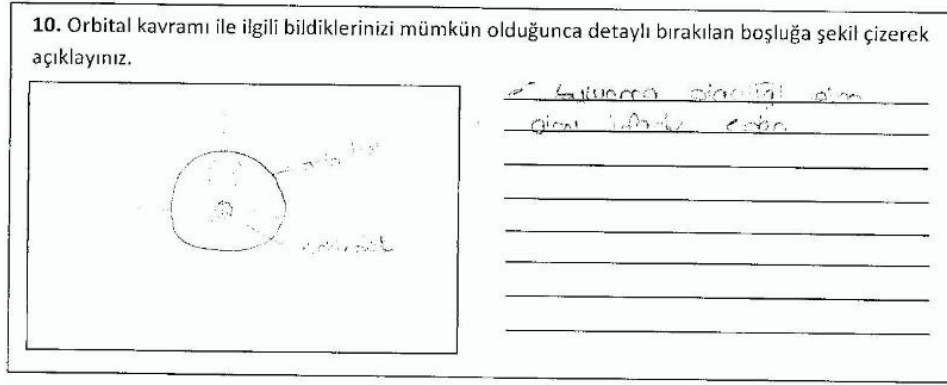 10. Orbital kavramı ile ilgili bildiklerinizi mümkün olduğunca detaylı bırakılan boşluğa şekil çizerek
açıklayınız.
bulunma olasılığı olan
alanı ifade eder.
orbital